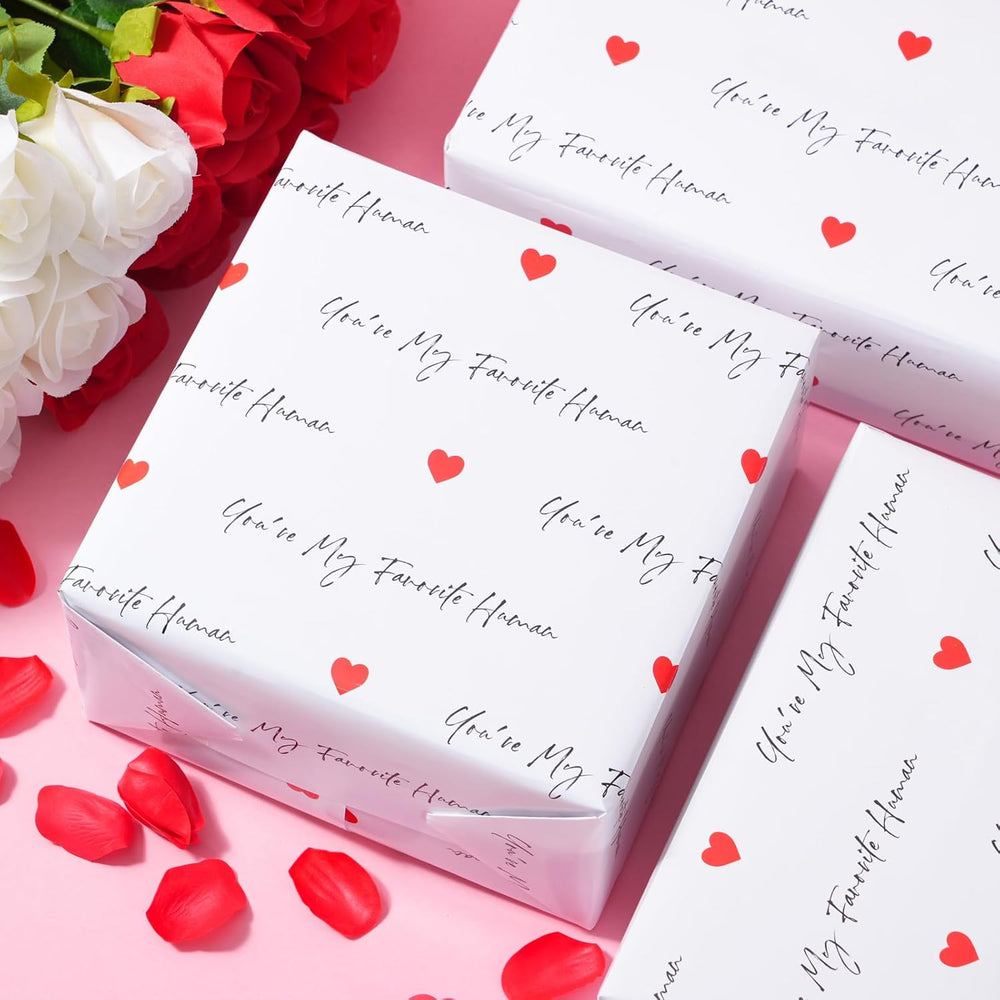 Human
You've My Favorite Human
've My Favorite Human
Favorite Human
You've My Favorite Human
You've My
Favorite Human
You've My Favorite Human
You've My
Favorite Human
You've My
You've My Favorite Human
My Favorite Human
Human
You've My Favorite Human
My Favorite Human
Human